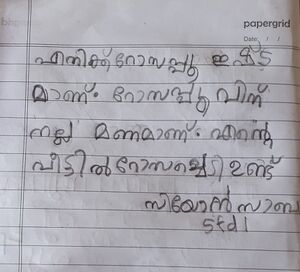 papergrid
Date: / /
എനിക്ക് റോസപ്പൂ ഇഷ്ട
മാണ്. റോസപ്പൂ വിന്
നല്ല മണമാണ്. എന്റെ
വീട്ടിൽ റോസച്ചെടി ഉണ്ട്
സിയോൻ സാബു
std 1